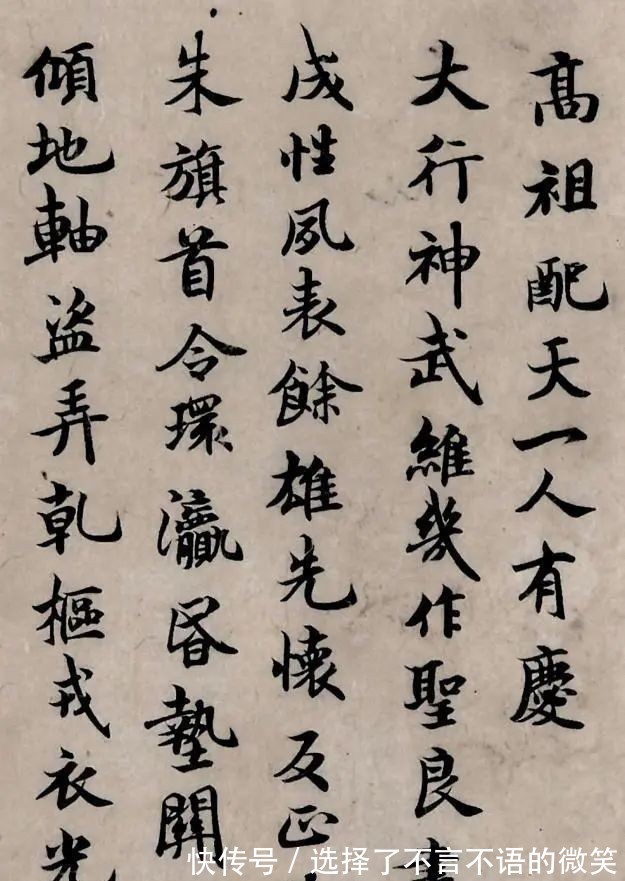 髙祖配天一人有慶
大行神武維幾作聖良
成性夙表餘雄先懷反正
朱旗首令環瀛昬墊
傾地軸盜弄乹樞戎衣光
快传号 / 选择了不言不语的微笑